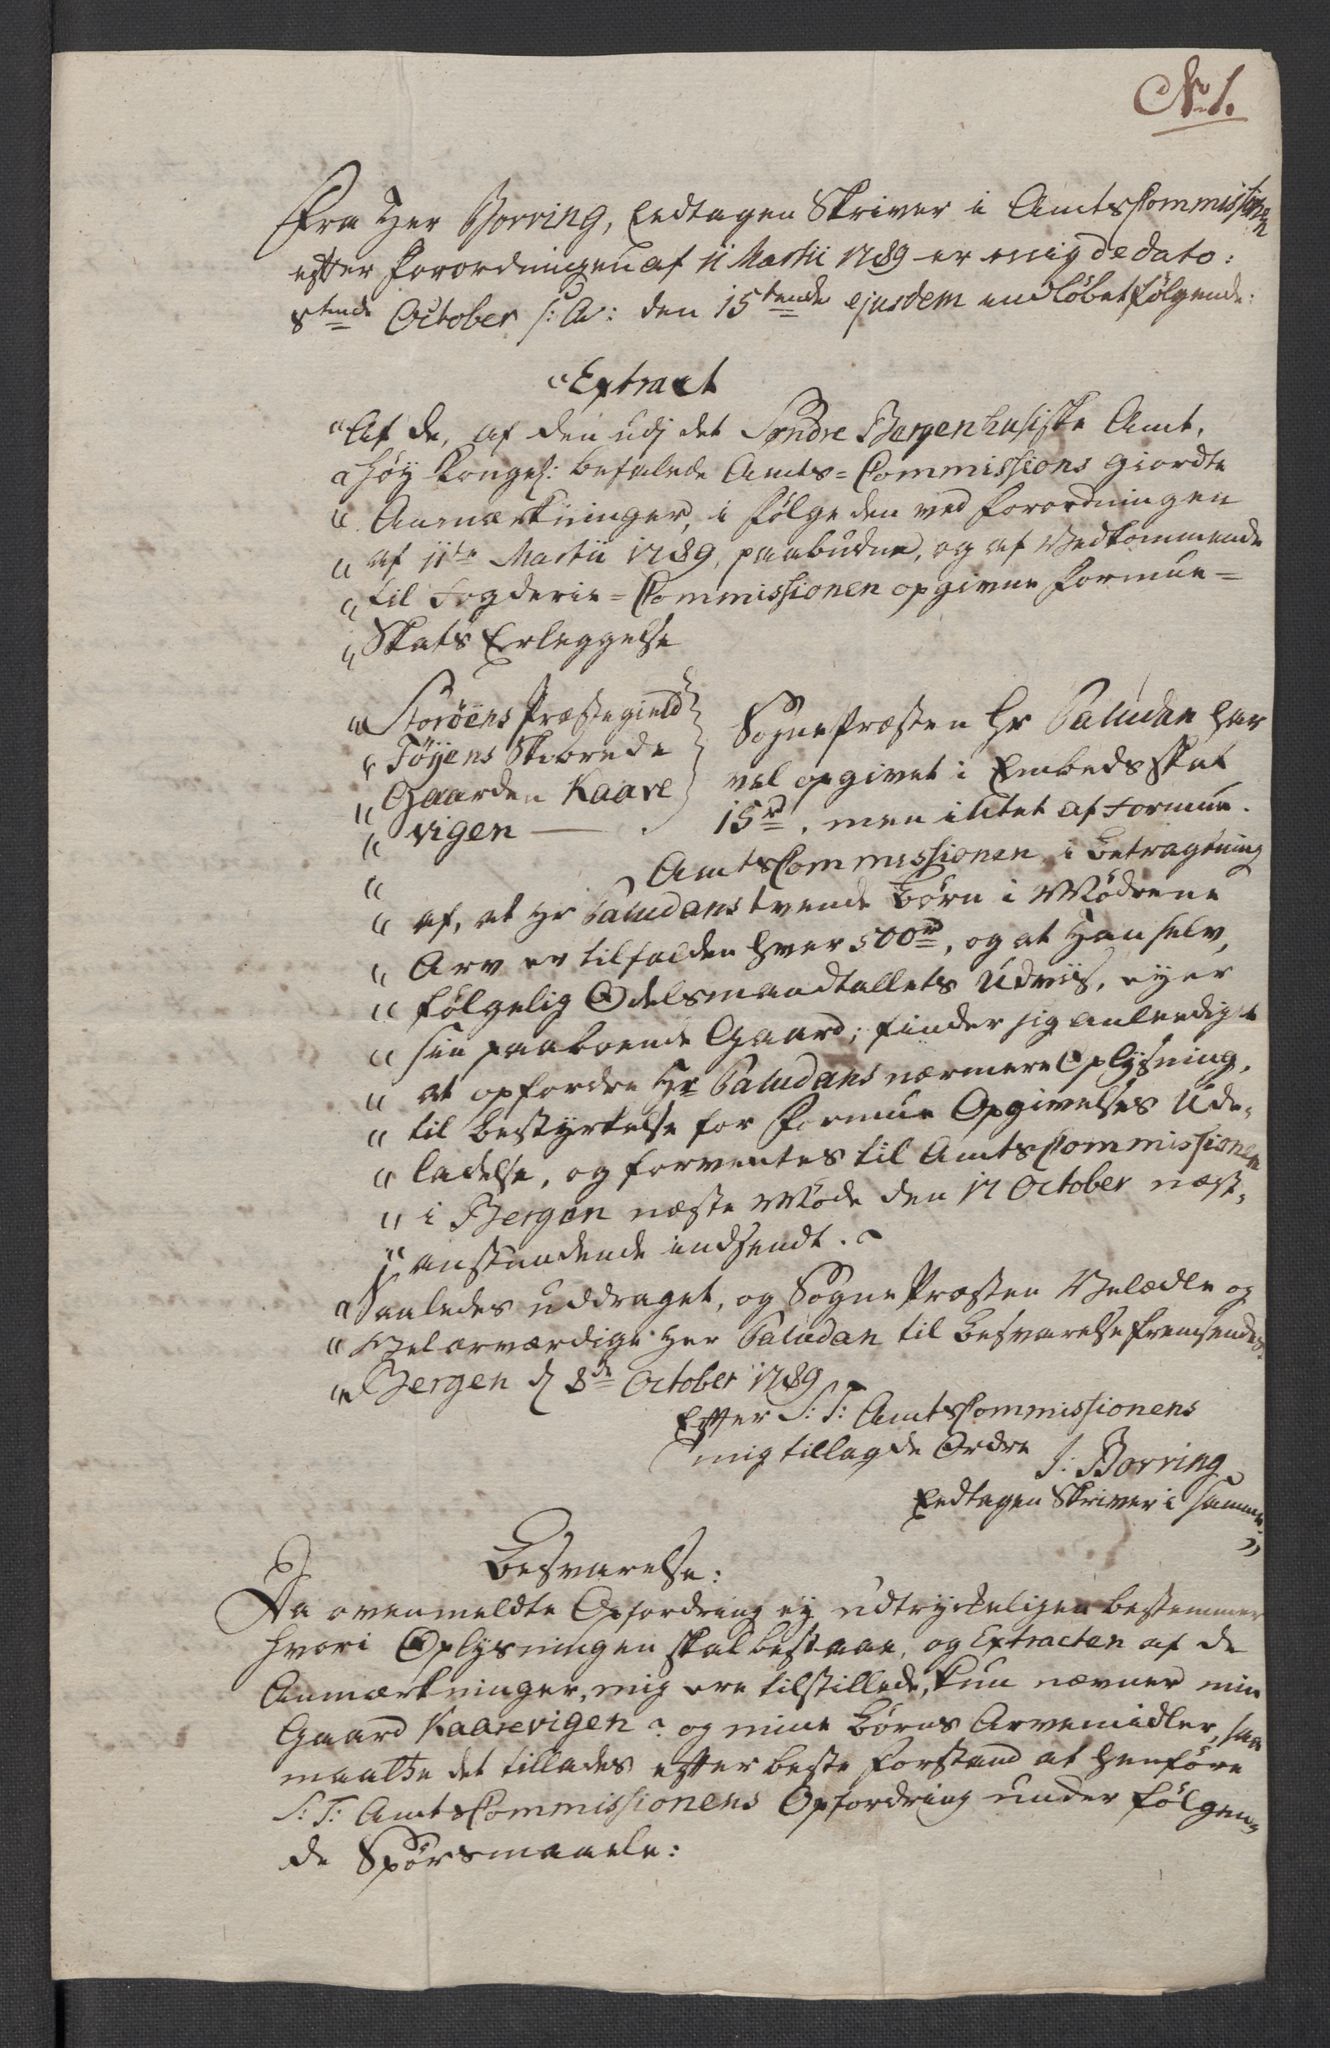 No 1.
Fra Her Borring, Eedtagen Skriver i AmtsCommissionen
efter Forordningen af 11 Martii 1789 er mig de dato:
8tende October s: A: den 15tende ejusdem indløbet følgende:
"Extract
"Af de, af den udj det Søndre Bergenhusiske Amt,
"høy Kongel: befalede Amts=Commissions giordte
"Anmærkninger, i følge den ved Forordningen
"af 11te Martii 1789, paabudne, og af Vedkommende
"til Fogderie=Commissionen opgivne Formue=
"Skats Erleggelse
"Storøens Præstegield
"Føyens Skibrede
"Gaarden Kaare
"vigen —
SognePræsten Hr Paludan har
vel opgivet i Embedsskat
15rd, men intet af Formue.
"AmtsCommissionen i betragtning
"af, at Hr Paludans tvende Børn i Mødrene
"Arv er tilfalden hver 500rd, og at Han selv,
"følgelig Odelsmandtallets Udviis, eyer
"sin paaboende Gaard; finder sig anleediget
"at opfordre Hr Paludans nærmere Oplysning,
"til bestyrkelse for Formue Opgivelses Ude-
"ladelse, og forventes til AmtsCommissionen
"i Bergen næste Møde den 17 October næst-
"anstundende indsendt.
"Saaledes uddraget, og SognePræsten Velædle og
"Velærværdige Her Paludan til besvarelse fremsendes.
"Bergen d 8de October 1789
Efter S: T: AmtsCommissionens
mig tillagde Ordre
J: Borring
Eedtagen Skriver i samme"
Besvarelse:
Da ovenmeldte Opfordring ey udtrykeligen bestemmer
hvori Oplysningen skal bestaae, og Extracten af de
Anmærkninger, mig ere tilstillede, kun nævner min
Gaard Kaarevigen og mine Børns Arvemidler, saa
maatte det tillades efter beste Forstand at henføre
S: T: AmtsCommissionens Opfordring under følgen-
de Spørsmaale: